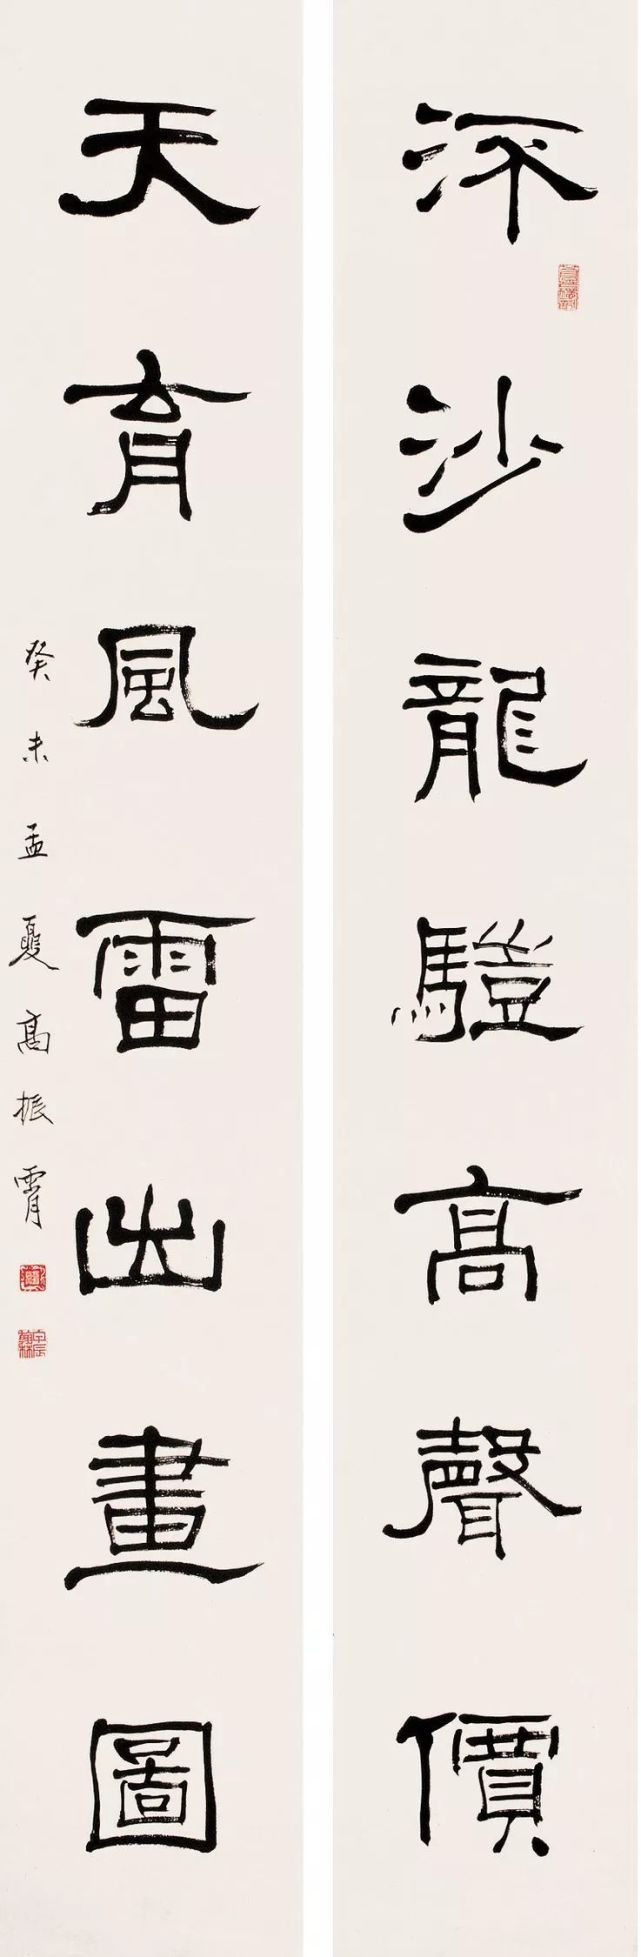 沙龍高聲價
天育風雷出畫圖
癸未孟夏高振霄